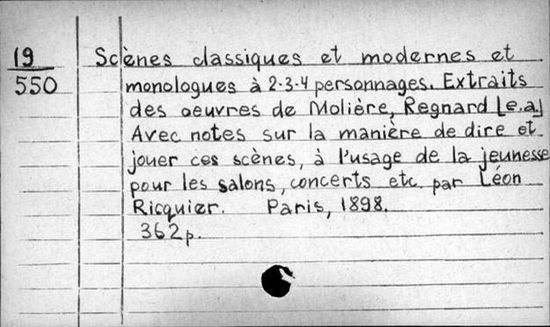 19
550
Scènes classiques et modernes et
monologues à 2-3-4 personnages. Extraits
des oeuvres de Molière, Regnard [e.a.]
Avec notes sur la manière de dire et
jouer ces scènes, à l'usage de la jeunesse
pour les salons, concerts etc. par Léon
Ricquier. Paris, 1898.
362p.